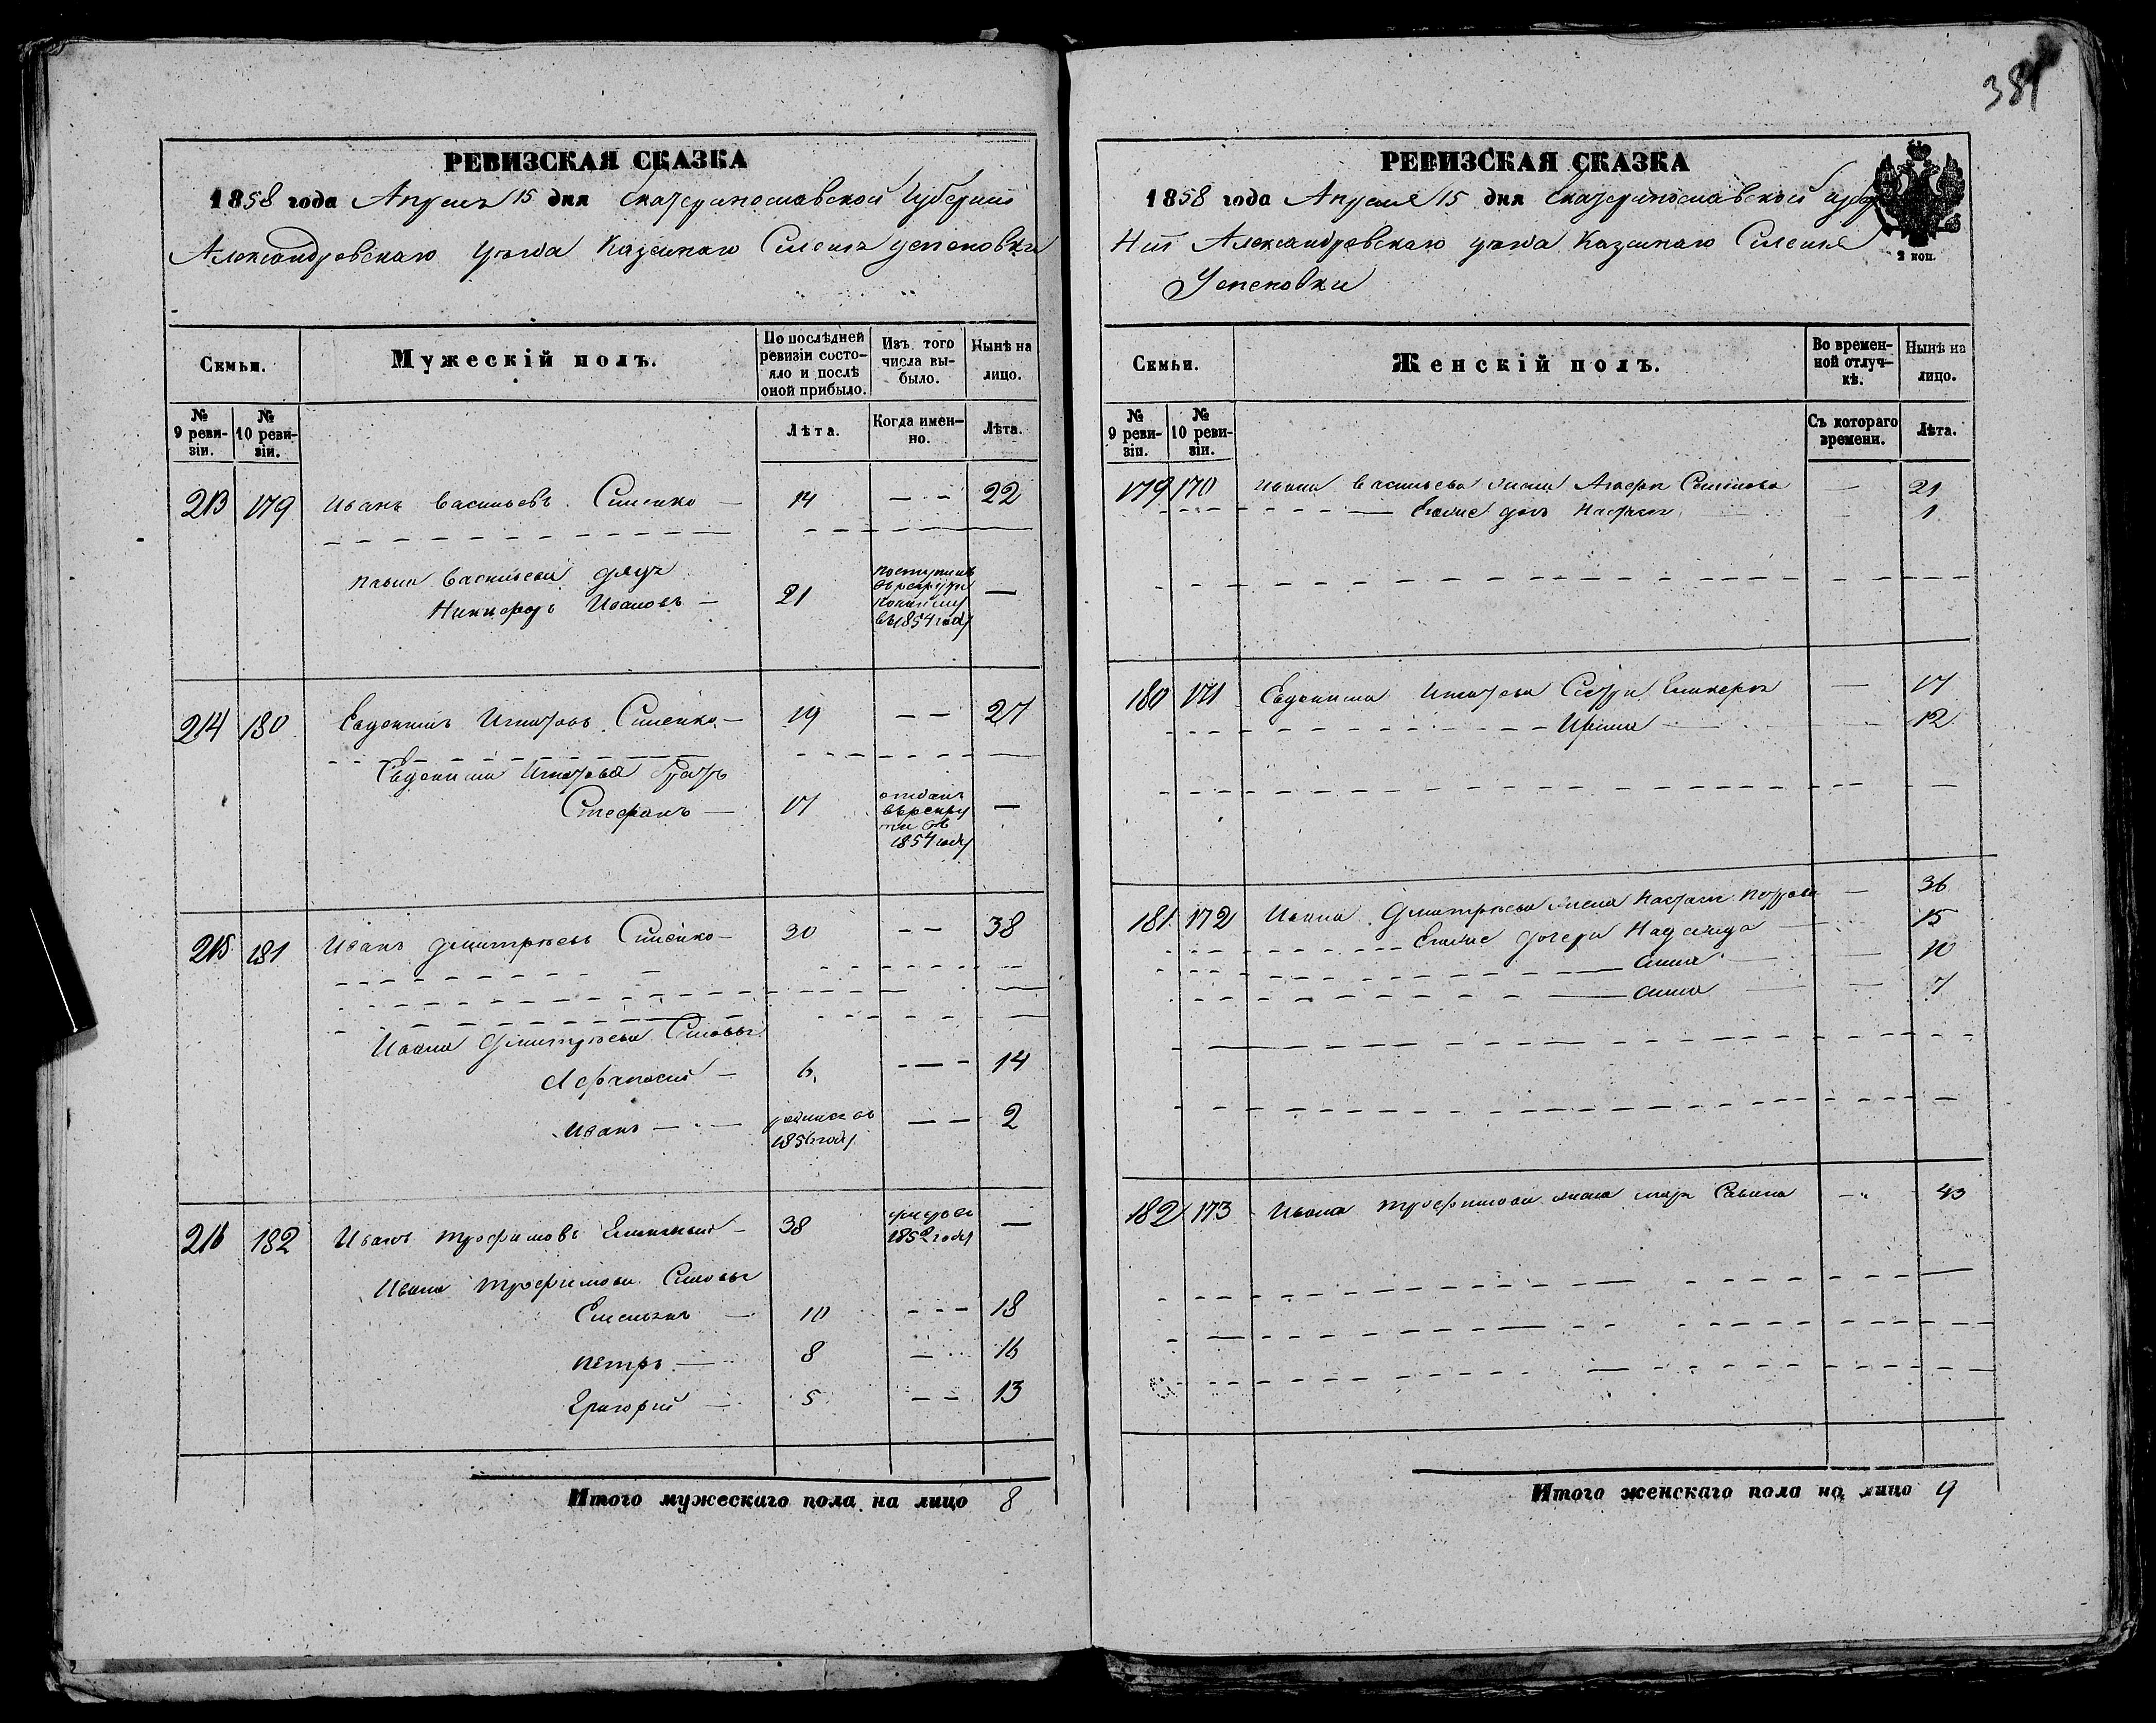 381
РЕВИЗСКАЯ СКАЗКА
1858 года Апреля 15 дня Екатеринославской Губернии
Александровскаго уезда Казеннаго Селения Успеновки
Семьи.
Мужескій полъ.
По послѣдней ревизіи состо-
яло и послѣ оной прибыло.
Изъ того числа вы-
было.
Нынѣ на лицо.
№ 9 реви-
зіи.
№ 10 реви-
зіи.
Лѣта.
Когда имен-
но.
Лѣта.
213 179 Иванъ Васильевъ 14 — 22
Ивана Васильева дядя
Никифоръ Ивановъ — 21 —
въ 1854 году
214 180 Евдокимъ Игнатовъ 19 — — 27
Евдокима Игнатова братъ
Стефанъ — 17 отданъ —
въ рекру
ти въ
1854 году
215 181 Иванъ Дмитріевъ 30 — — 38
Ивана Дмитріева Сыновья
Афанасий — 6 — 14
Иванъ — — родился въ — — 2
1856 году
216 182 Иванъ Трофимовъ 38 умеръ въ —
1852 году
Ивана Трофимова Сыновья
Емельянъ — 10 - - - 18
Петръ — 8 — 16
Григорий — 5 — — 13
Итого мужескаго пола на лицо 8
РЕВИЗСКАЯ СКАЗКА
1858 года Апреля 15 дня Екатеринославской Губер
нии Александровскаго уезда Казеннаго Селения
Успеновки
2 коп.
Семьи.
Женскій полъ.
Во времен-
ной отлуч-
кѣ.
Нынѣ на лицо.
№ 9 реви-
зіи.
№ 10 реви-
зіи.
Съ котораго времени.
Лѣта.
179 170 Ивана Васильева жена — 21
дочь Настасия — 1
180 171 Евдокима Игнатова Сестры — 17
Ирина — 12
181 172 Ивана Дмитріева жена Настасия Петрова — 36
дочери Надежда — 15
Анна — 10
Анна — 7
182 173 Ивана Трофимова жена — 43
Итого женскаго пола на лицо 9